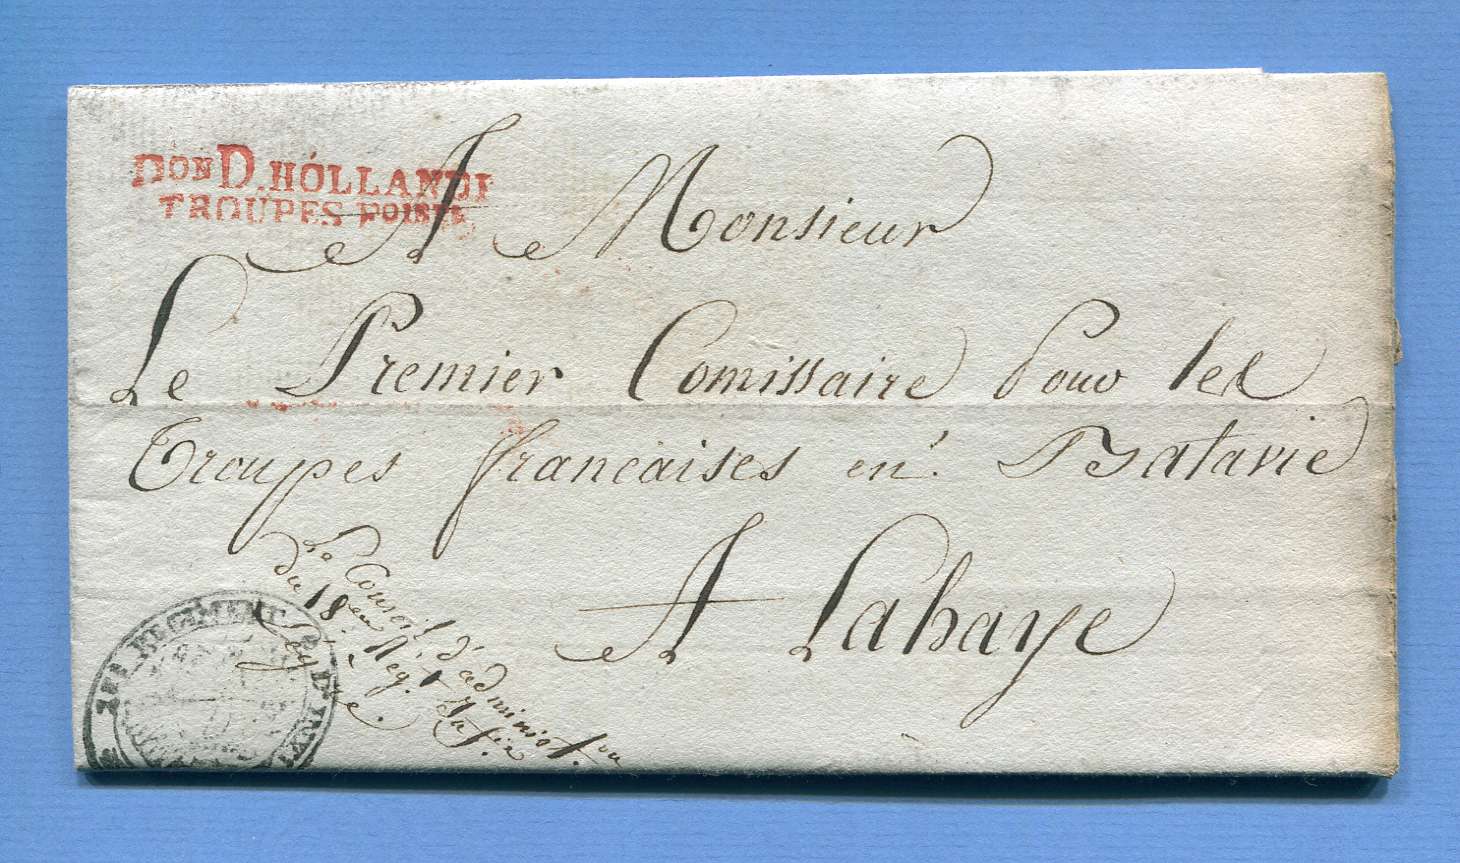 DON D. HOLLANDE
TROUPES FOISES
A Monsieur
Le Premier Comissaire Pour les
Troupes francaises en Batavie
A Lahaye
Le Conseil d'administ.on
du 18.em Reg.t Inf.ie
Legere.
REGIMENT D'INF